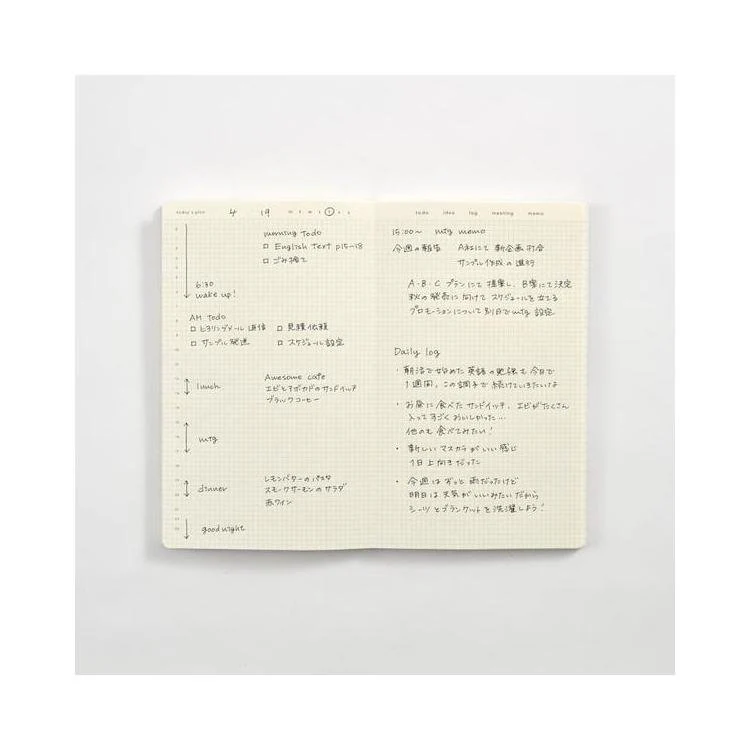 today's plan 4 19 M T W T F S S
morning todo
□ English Text p15-18
□ ごみ捨て
6:30
wake up!
AM todo
□ ヒヤリングメール返信 □ 見積依頼
□ サンプル発送 □ スケジュール設定
lunch
Awesome cafe
エビとアボカドのサンドイッチ
ブラックコーヒー
mtg
dinner
レモンバターのパスタ
スモークサーモンのサラダ
赤ワイン
good night
todo idea log meeting memo
15:00〜 mtg memo
今週の報告 A社にて 新企画打合
サンプル作成の進行
A・B・C プランにて提案し、B案にて決定
秋の発売に向けてスケジュールを立てる
プロモーションについて別日でmtg 設定
Daily log
・朝活で始めた英語の勉強も今日で
1週間。この調子で続けていきたいな
・お昼に食べたサンドイッチ、エビがたくさん
入ってすごくおいしかった…
他のも食べてみたい！
・新しいマスカラがいい感じ
1日上向きだった
・今週はずっと雨だったけど
明日は天気がいいみたいだから
シーツとブランケットを洗濯しよう！